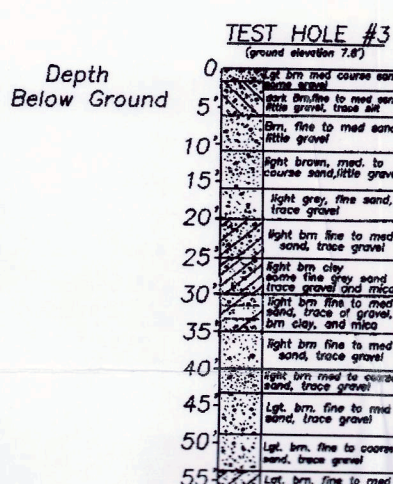 TEST HOLE #3
(ground elevation 7.8')
Depth
Below Ground
0
5'
10'
15'
20'
25'
30'
35'
40'
45'
50'
55'
Lgt brn med course san
some gravel
dark Brn,fine to med san
little gravel, trace silt
Brn, fine to med sand
little gravel
light brown, med. to
course sand,little grave
light grey, fine sand,
trace gravel
light brn fine to med
sand, trace gravel
light brn clay
some fine grey sand
trace gravel and mica
light brn fine to med
sand, trace of gravel,
brn clay, and mica
light brn fine to med
sand, trace gravel
light brn med to coarse
sand, trace gravel
Lgt. brn. fine to mid
sand, trace gravel
Lgt. brn. fine to coarse
sand, trace gravel
Lgt. brn. fine to med